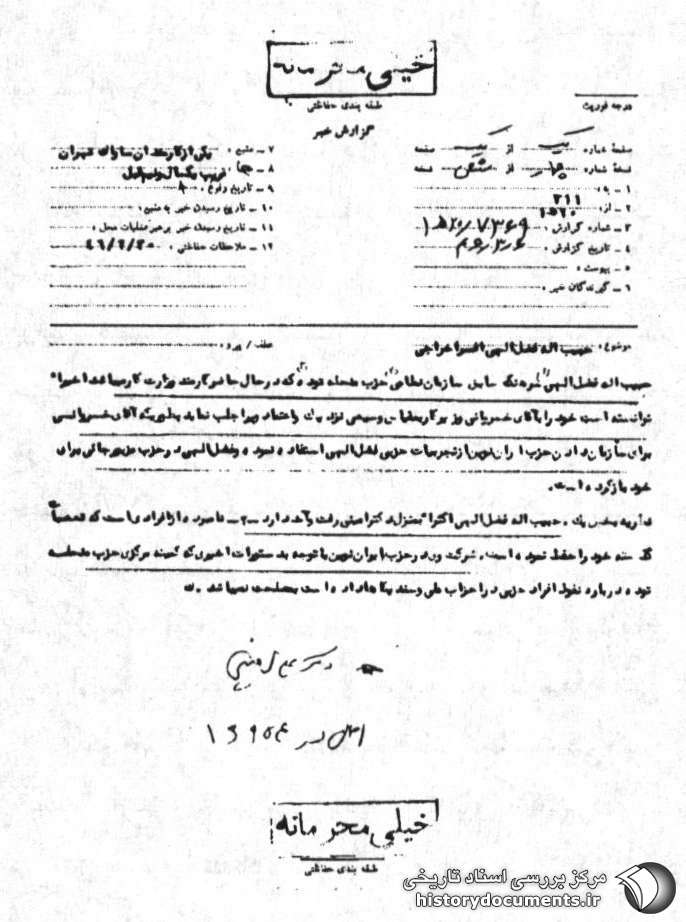 خیلی محرمانه
طبقه بندی حفاظتی
درجه فوریت
گزارش خبر
صفحه شماره یک از یک صفحه
نسخه شماره چهار از شش نسخه
۱ ـ به :
۲ ـ از : ۳۱۱
۳ ـ شماره گزارش :
۴ ـ تاریخ گزارش :
۵ ـ پیوست :
۶ ـ گیرندگان خبر :
۷ ـ منبع : یکی از کارمندان ساواک تهران
۸ ـ
۹ ـ تاریخ وقوع :
۱۰ ـ تاریخ رسیدن خبر به منبع :
۱۱ ـ تاریخ رسیدن خبر برهبر عملیات محل :
۱۲ ـ ملاحظات حفاظتی :
موضوع : حبیب اله فضل الهی افسر اخراجی
عطف / پیرو :
حبیب اله فضل الهی سابق سازمان نظامی حزب منحله توده که در حال حاضر کارمند وزارت کار میباشد اخیرا"
توانسته است خود را با آقای خسروانی وزیر کار بمقیاس وسیعی نزدیک و اعتماد ویرا جلب نماید بطوریکه آقای خسروانی
برای سازمان دادن حزب ایران نوین از تجربیات حزبی فضل الهی استفاده نموده و فضل الهی در حزب مزبور جائی برای
خود باز کرده است.
نظریه بخش یک. حبیب اله فضل الهی اکثرا" بمنزل دکتر امینی رفت و آمد دارد ۲ـ نامبرده از افرادی است که
گذشته خود را حفظ نموده است. شرکت وی در حزب ایران نوین با توجه بدستورات اخیری که کمیته مرکزی حزب منحله
توده درباره نفوذ افراد حزبی در احزاب ملی و سندیکاها داده است بمصلحت نمیباشد.
اصل در
خیلی محرمانه
طبقه بندی حفاظتی
مرکز بررسی اسناد تاریخی
historydocuments.ir